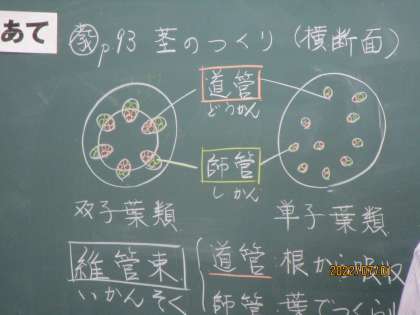 あて
教 p93 茎のつくり(横断面)
道管
どうかん
師管
しかん
双子葉類
単子葉類
維管束
いかんそく
道管:根から吸収
師管:葉でつくら
2022/07/01